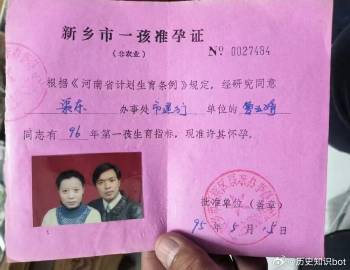 新乡市一孩准孕证
(非农业) Nº 0027484
根据《河南省计划生育条例》规定,经研究同意
办事处 单位的
同志有 96 年第一孩生育指标,现准许其怀孕。
批准单位(盖章)
95 年 5 月 15 日
@历史知识bot